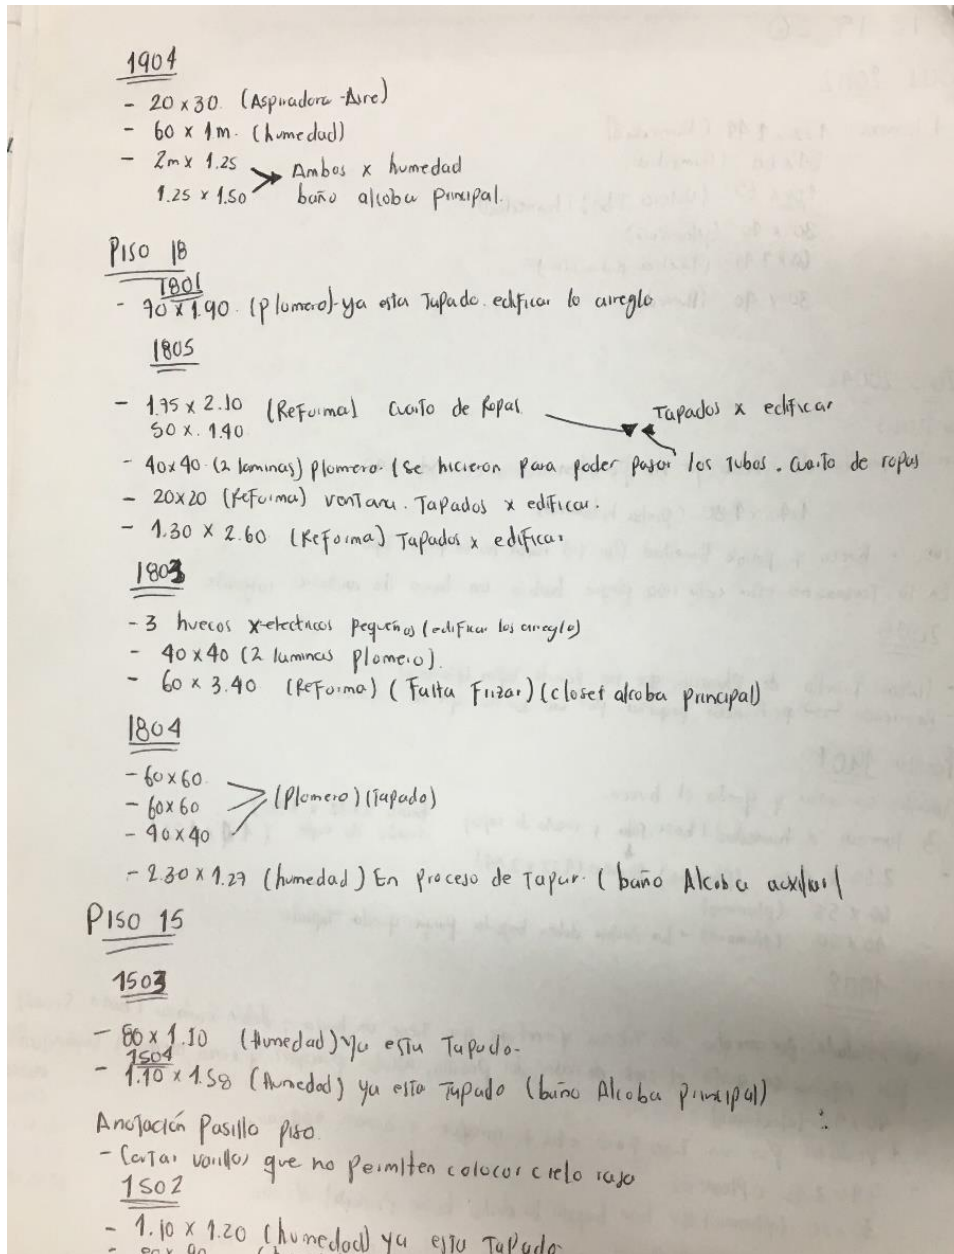 1904
- 20 x 30. (Aspiradora - Aire)
- 60 x 1m. (humedad)
- 2m x 1.25
1.25 x 1.50
Ambos x humedad
baño alcoba principal.
Piso 18
1801
- 70 x 1.90. (plomero) - ya esta Tapado. edificar lo arreglo
1805
- 1.75 x 2.10 (Reforma) cuarto de Ropas
50 x. 1.40
Tapados x edificar
- 40x40. (2 laminas) plomero. (Se hicieron para poder pasar los Tubos. cuarto de ropas
- 20x20 (Reforma) ventana. Tapados x edificar.
- 1.30 x 2.60 (Reforma) Tapados x edificar
1803
- 3 huecos x electricos pequeños (edificar los arreglo)
- 40x40 (2 laminas plomero).
- 60 x 3.40 (Reforma) (Falta Frizar) (closet alcoba principal)
1804
- 60x60.
- 60x60
- 40x40
(Plomero) (Tapado)
- 2.30 x 1.27 (humedad) En proceso de Tapar. (baño Alcoba auxiliar)
Piso 15
1503
- 80 x 1.10 (Humedad) Ya esta Tapado.
1504
- 1.10 x 1.58 (Humedad) ya esta Tapado (baño Alcoba principal)
Anotación Pasillo piso.
- Cortar varillas que no permiten colocar cielo raso
1502
- 1.10 x 1.20 (humedad) ya esta Tapado